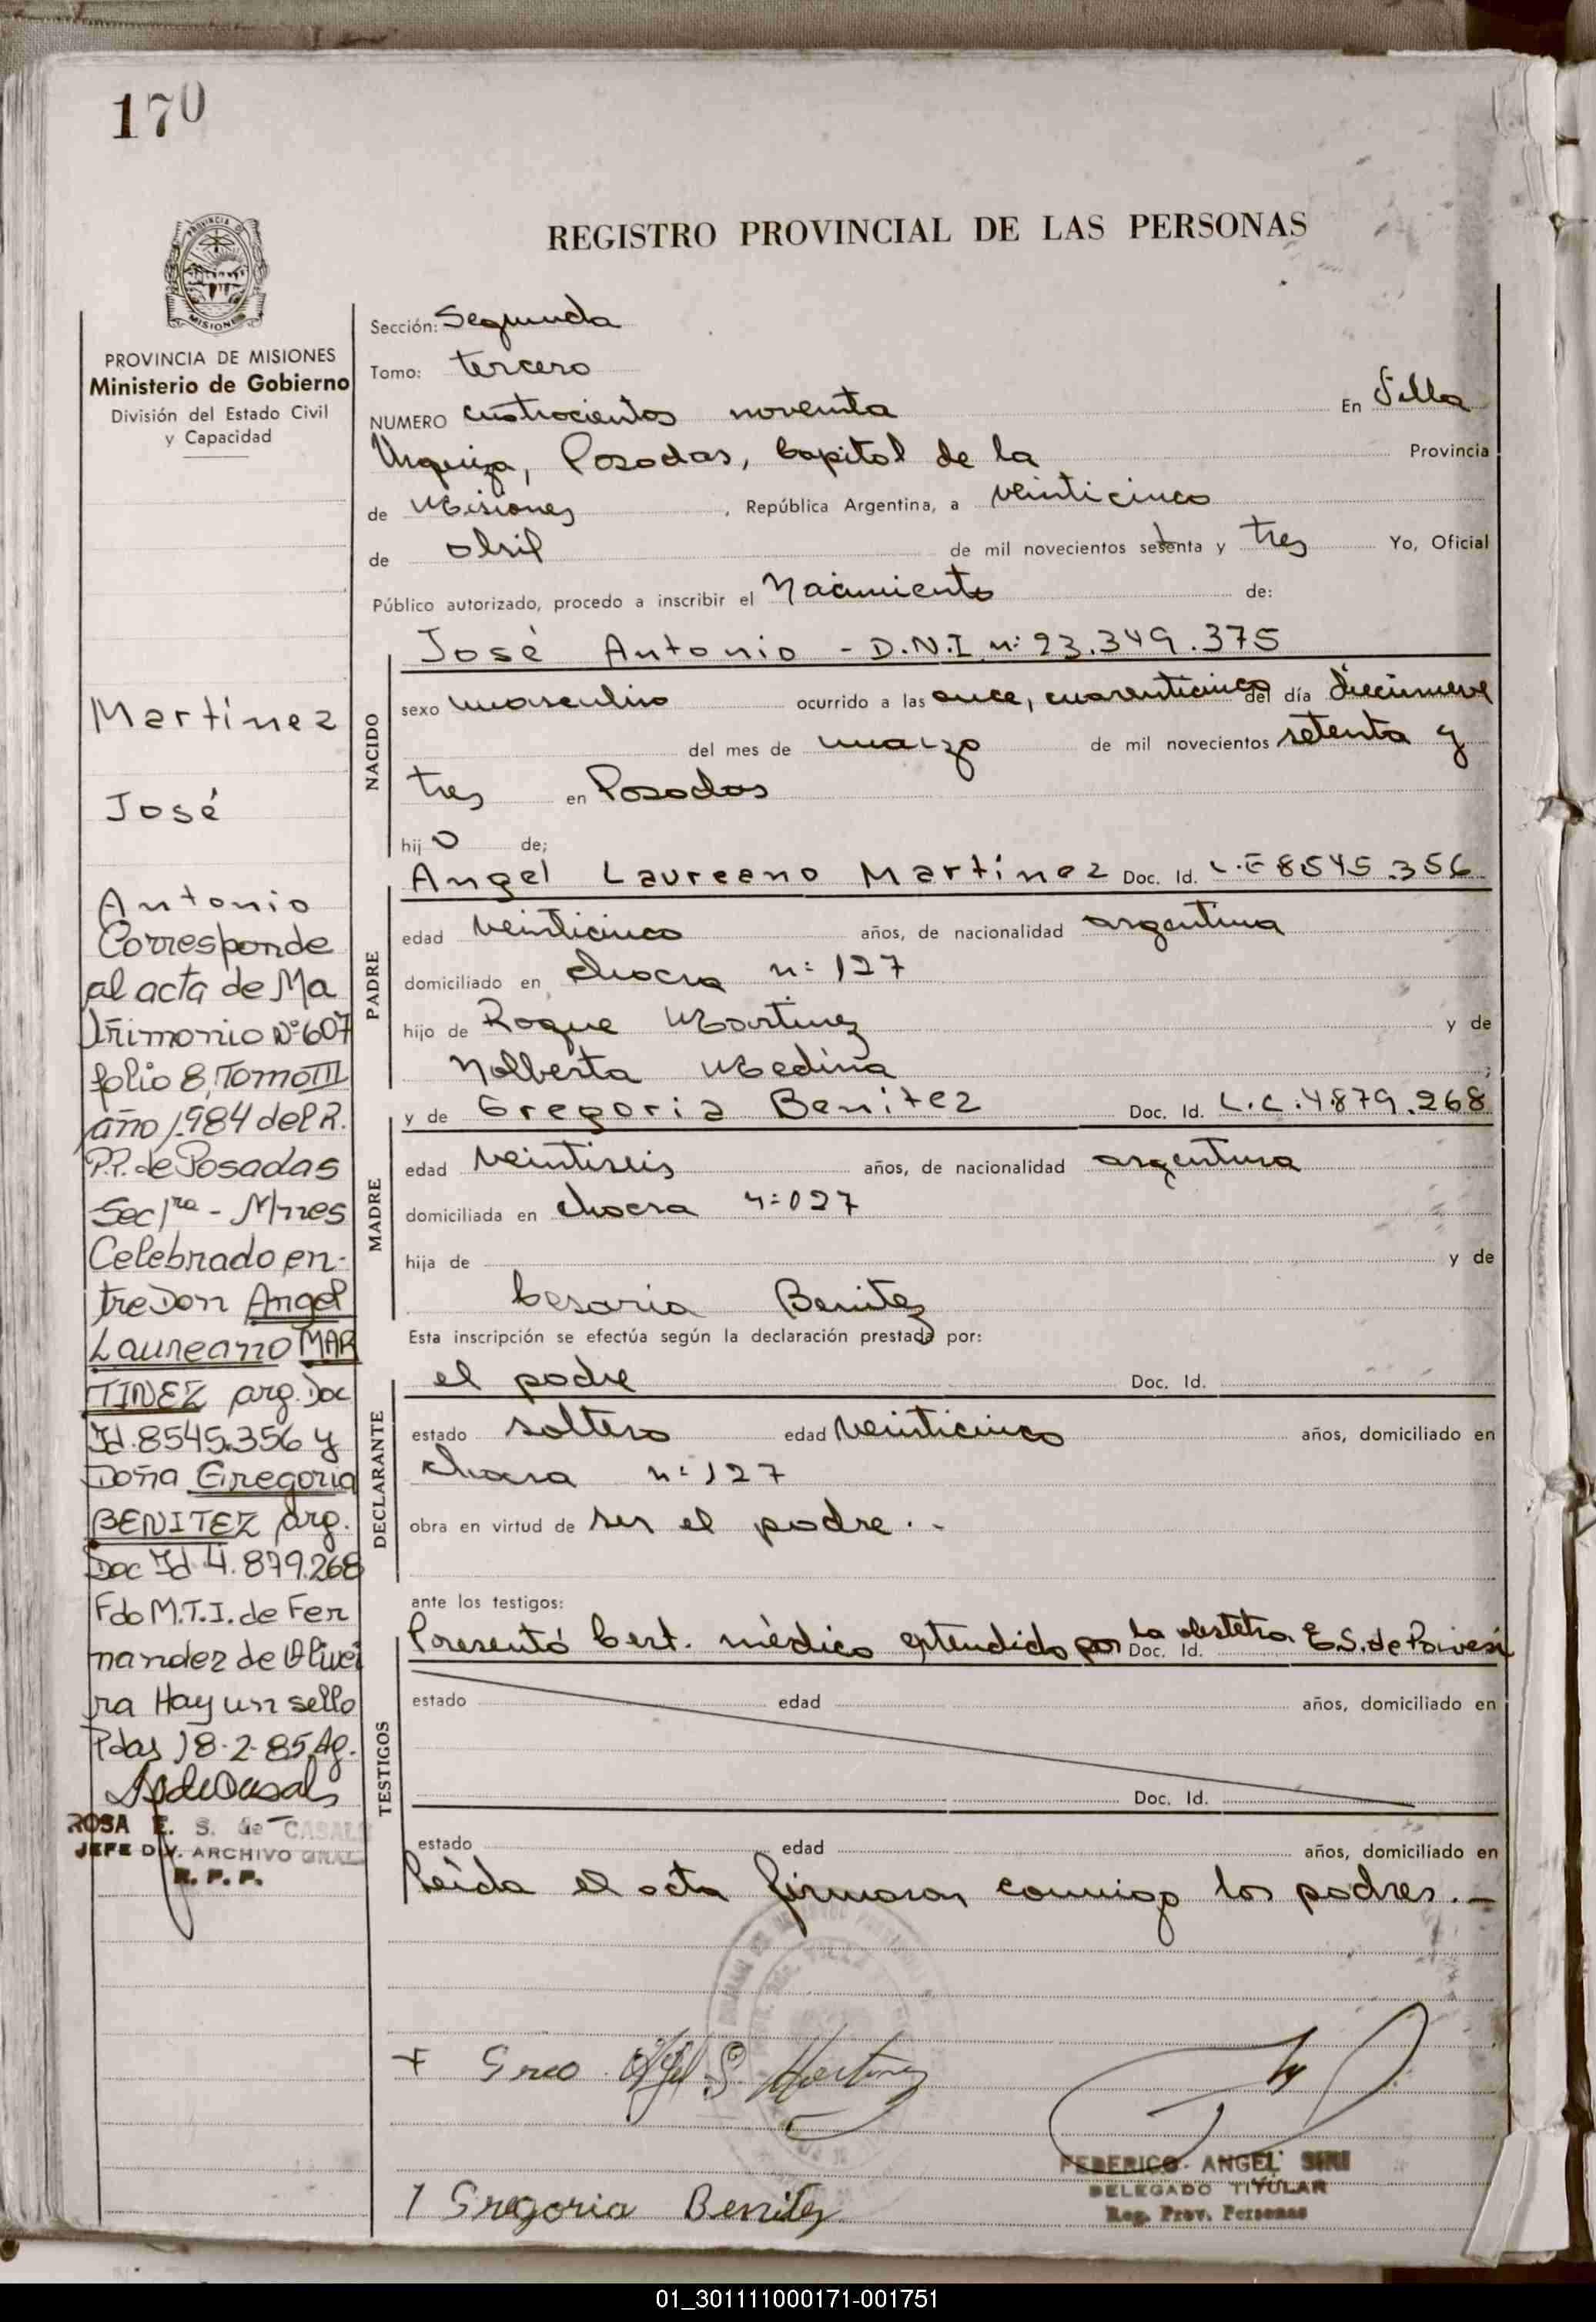 170
REGISTRO PROVINCIAL DE LAS PERSONAS
PROVINCIA DE MISIONES
MISIONES
PROVINCIA DE MISIONES
Ministerio de Gobierno
División del Estado Civil
y Capacidad
Martínez
José
Antonio
Corresponde
al acta de Ma
trimonio Nº 607
folio 8, Tomo III
año 1984 del R.
P.P. de Posadas
Sec 1ra - Mnes
Celebrado en-
tre Don Angel
Laureano MAR
TINEZ arg. Doc
Id. 8545.356 y
Doña Gregoria
BENITEZ arg.
Doc Id 4.879.268
Fdo M.T.I. de Fer
nandez de Olivei
ra Hay un sello
Pdas 18-2-85 Ag.
ROSA E. S. de CASALS
JEFE DIV. ARCHIVO GRAL
R. P. P.
Sección: Segunda
Tomo: tercero
NUMERO cuatrocientos noventa En Villa
Urquiza, Posadas, Capital de la Provincia
de Misiones, República Argentina, a veinticinco
de abril de mil novecientos setenta y tres Yo, Oficial
Público autorizado, procedo a inscribir el Nacimiento de:
José Antonio - D.N.I. nº: 23.349.375
NACIDO
sexo masculino ocurrido a las once, cuarenticinco del día diecinueve
del mes de marzo de mil novecientos setenta y
tres en Posadas
hijo de;
PADRE
Angel Laureano Martínez Doc. Id. L.E 8545.356
edad veinticinco años, de nacionalidad argentina
domiciliado en chacra n: 127
hijo de Roque Martinez y de
Nolberta Medina;
MADRE
y de Gregoria Benitez Doc. Id. L.C. 4.879.268
edad veintiseis años, de nacionalidad argentina
domiciliada en chacra n: 027
hija de y de
Cesaria Benitez
Esta inscripción se efectúa según la declaración prestada por:
DECLARANTE
el padre Doc. Id.
estado soltero edad veinticinco años, domiciliado en
chacra n: 127
obra en virtud de ser el padre.-
ante los testigos:
TESTIGOS
Presentó Cert. médico extendido por la obstetra E.S. de Doc. Id.
estado edad años, domiciliado en
Doc. Id.
estado edad años, domiciliado en
Leída el acta firmaron conmigo los padres.-
+ Martinez
Gregoria Benitez
FEDERICO ANGEL SIRI
DELEGADO TITULAR
Reg. Prov. Personas
01_301111000171-001751